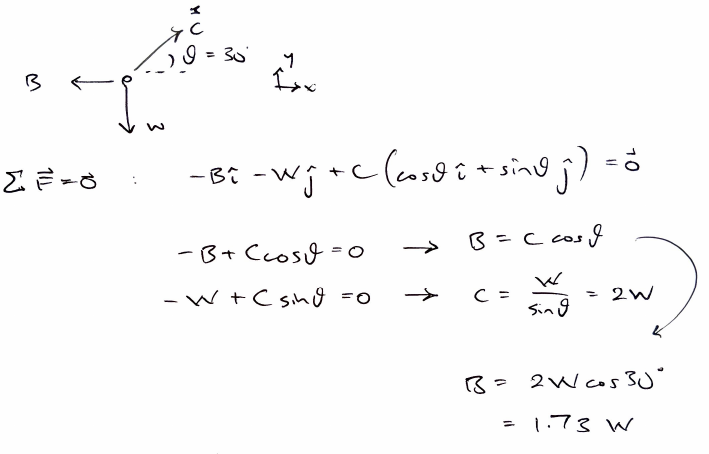 C
θ = 30°
B
y
x
W
Σ F⃗ = 0⃗ : -Bî - Wĵ + C(cosθ î + sinθ ĵ) = 0⃗
-B + C cosθ = 0 → B = C cosθ
-W + C sinθ = 0 → C = W/sinθ = 2W
B = 2W cos 30°
= 1.73 W